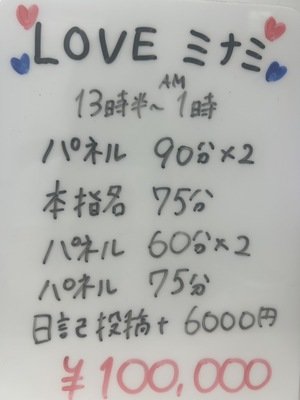 LOVE ミナミ
AM
13時半~1時
パネル 90分×2
本指名 75分
パネル 60分×2
パネル 75分
日記投稿+6000円
¥100,000